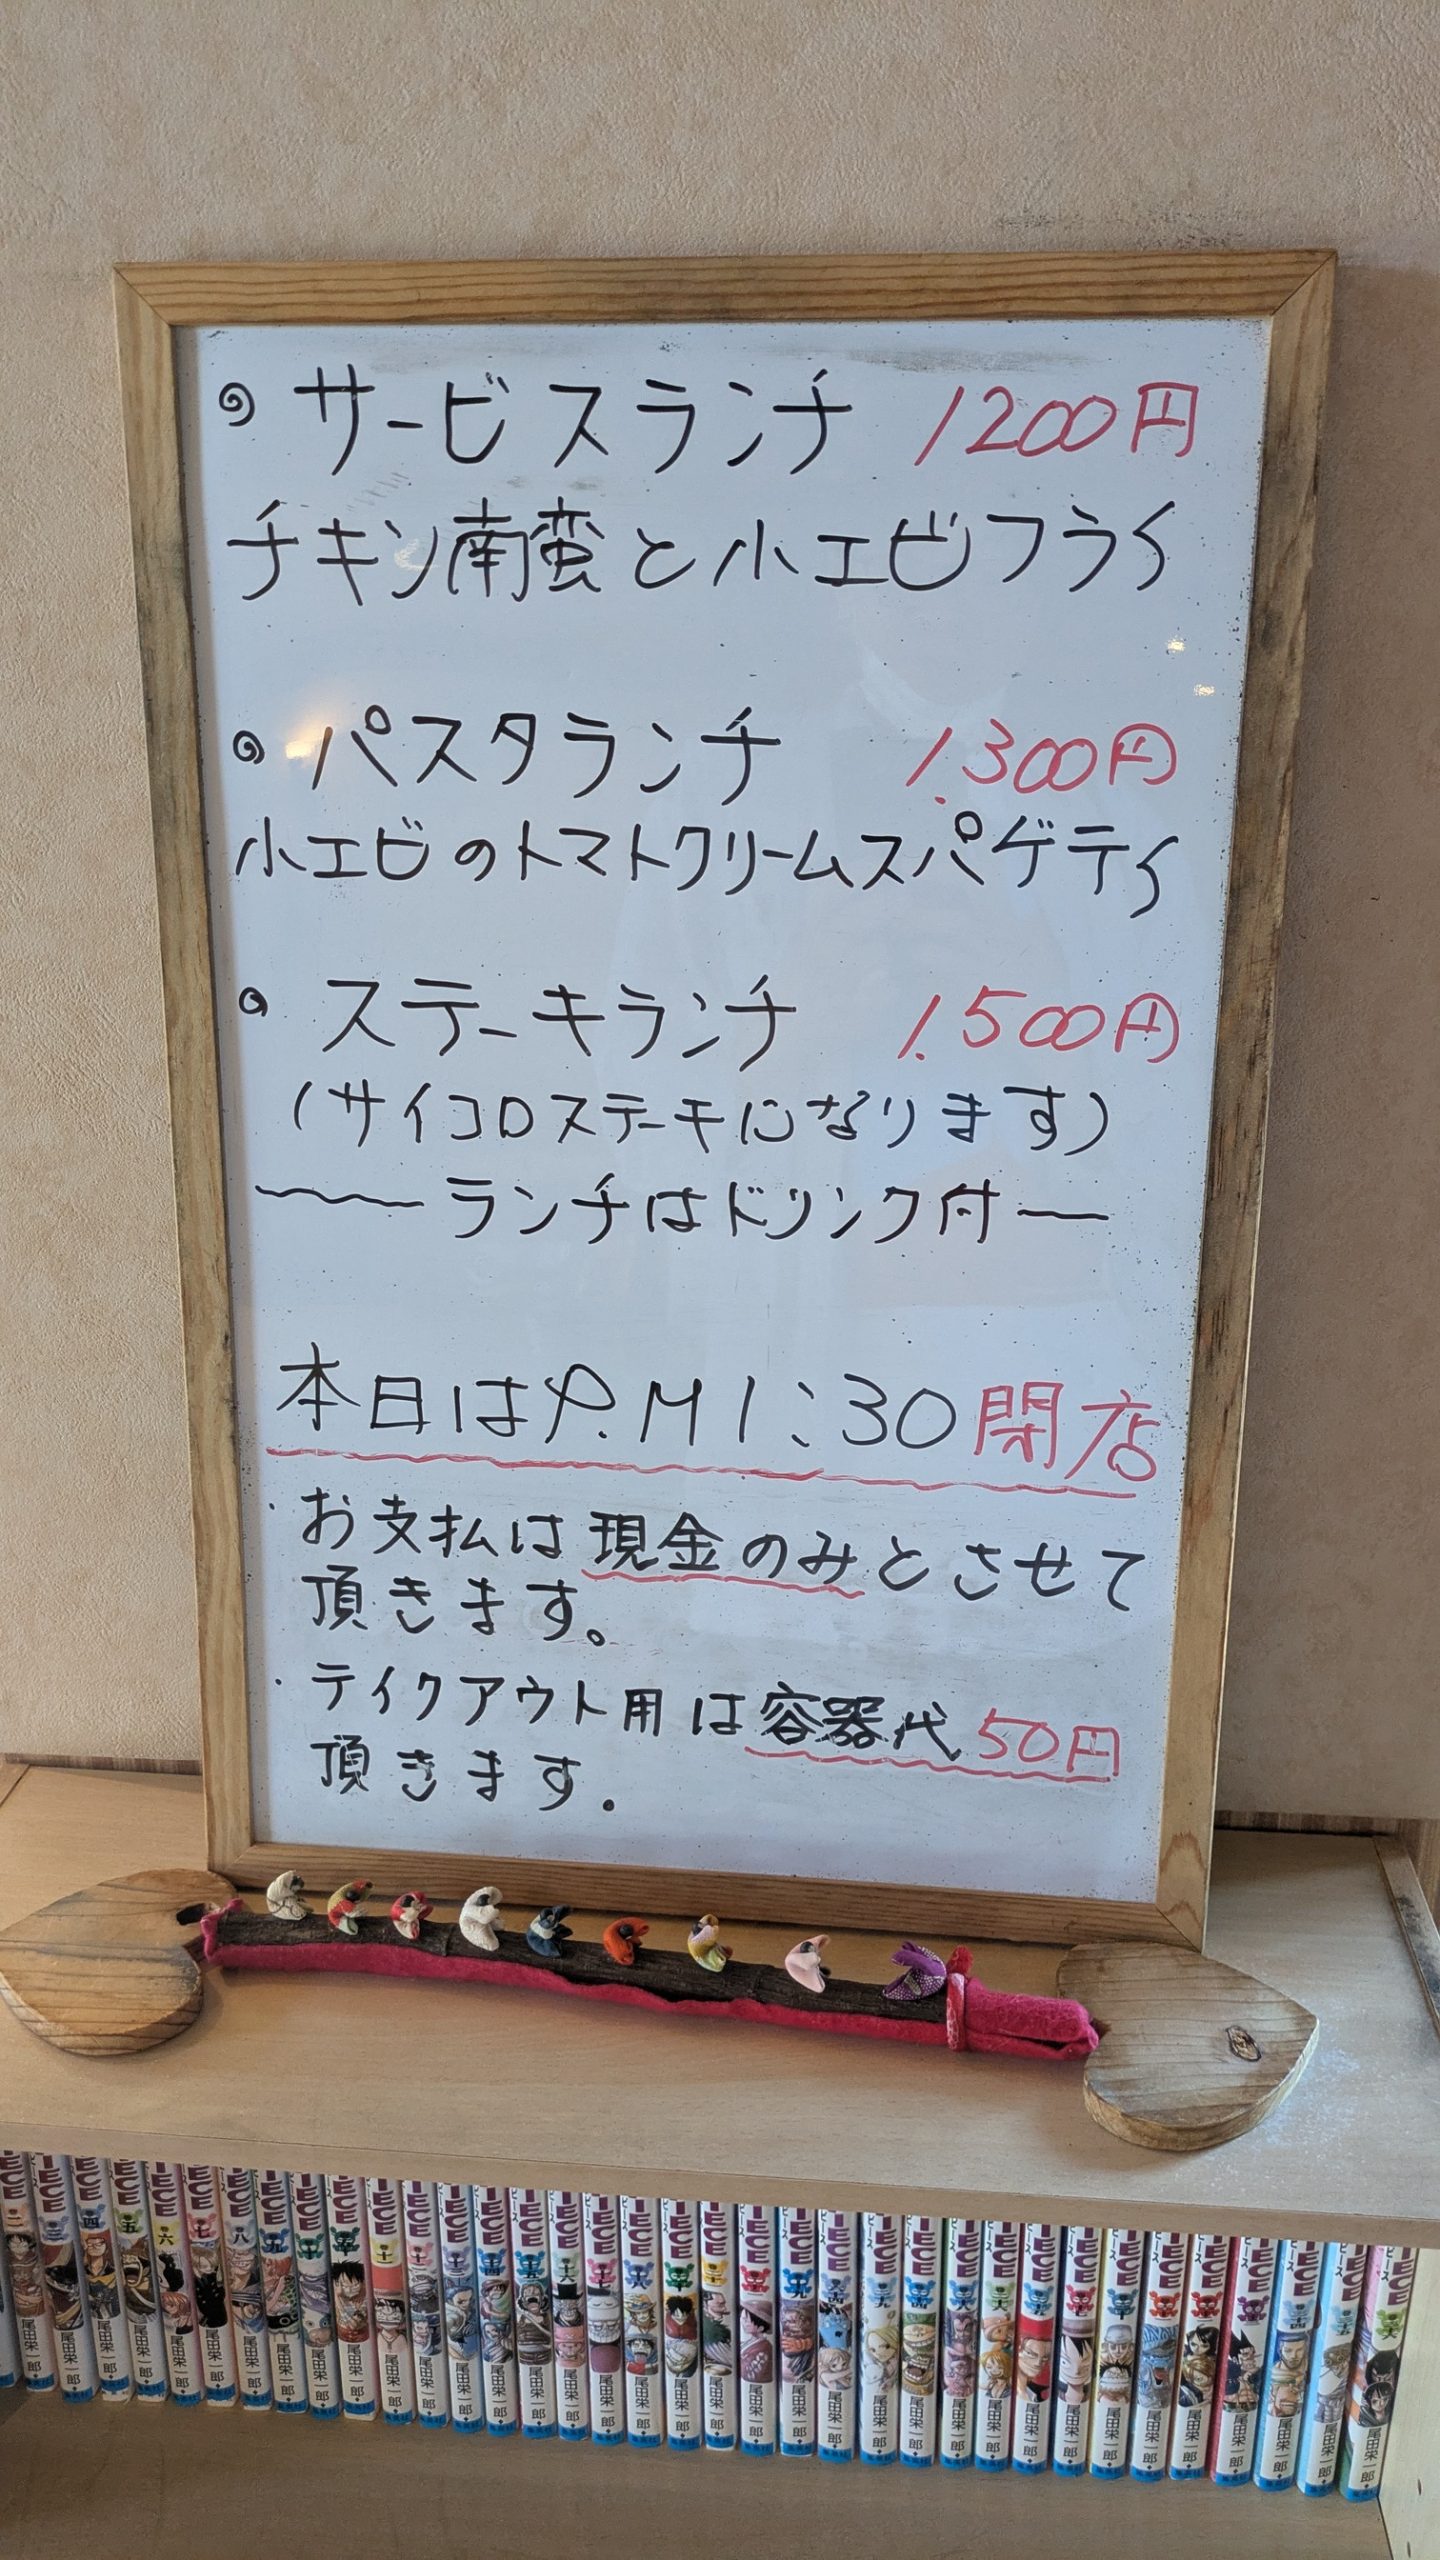 サービスランチ 1200円
チキン南蛮と小エビフライ
パスタランチ 1.300円
小エビのトマトクリームスパゲティ
ステーキランチ 1.500円
(サイコロステーキになります)
〜〜ランチはドリンク付〜
本日はP.M1:30閉店
・お支払は現金のみとさせて
頂きます。
・テイクアウト用は容器代50円
頂きます.
IECE
尾田栄一郎
集英社